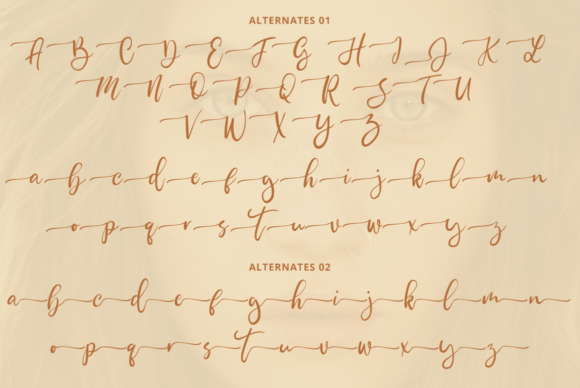 ALTERNATES 01
A B C D E F G H I J K L
M N O P Q R S T U
V W X Y Z
a b c d e f g h i j k l m n
o p q r s t u v w x y z
ALTERNATES 02
a b c d e f g h i j k l m n
o p q r s t u v w x y z